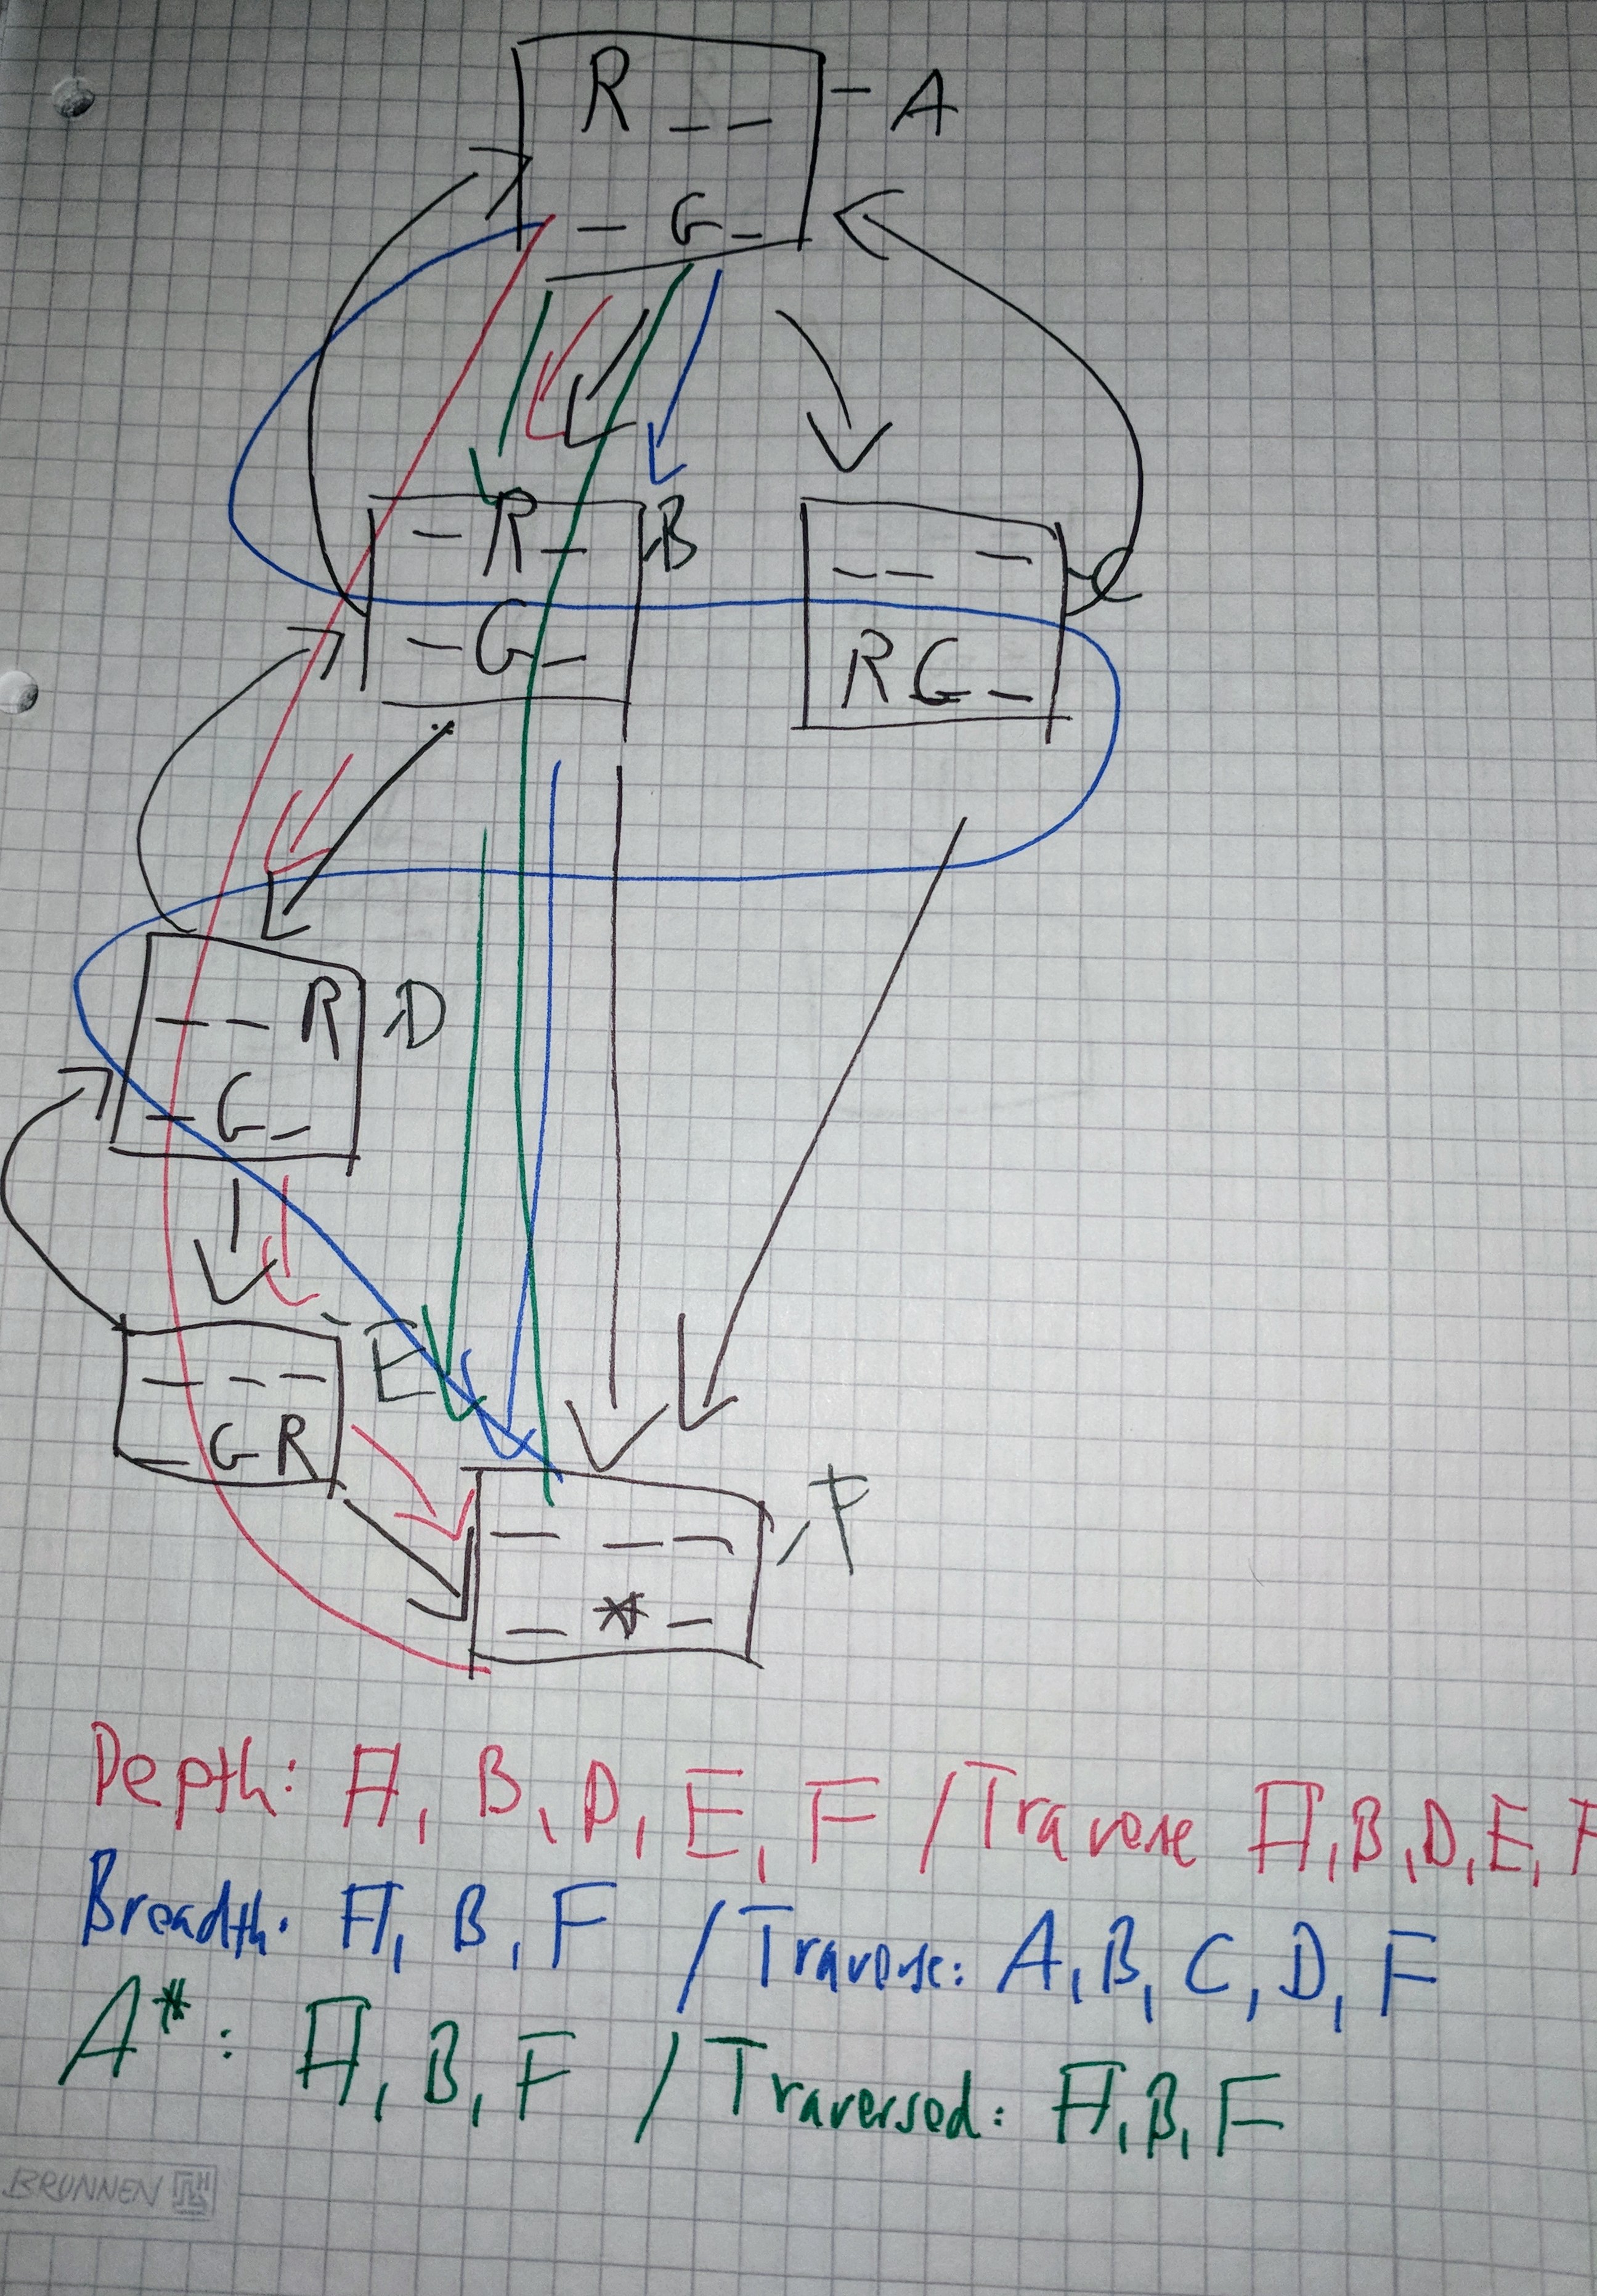 R _ _ - A
_ G _
- R _ B
- G _
_ _ _ C
R G _
_ _ R D
_ G _
_ _ _ E
_ G R
_ _ _ F
_ * _
Depth: A, B, D, E, F / Traverse A, B, D, E, F
Breadth: A, B, F / Traverse: A, B, C, D, F
A*: A, B, F / Traversed: A, B, F
BRUNNEN